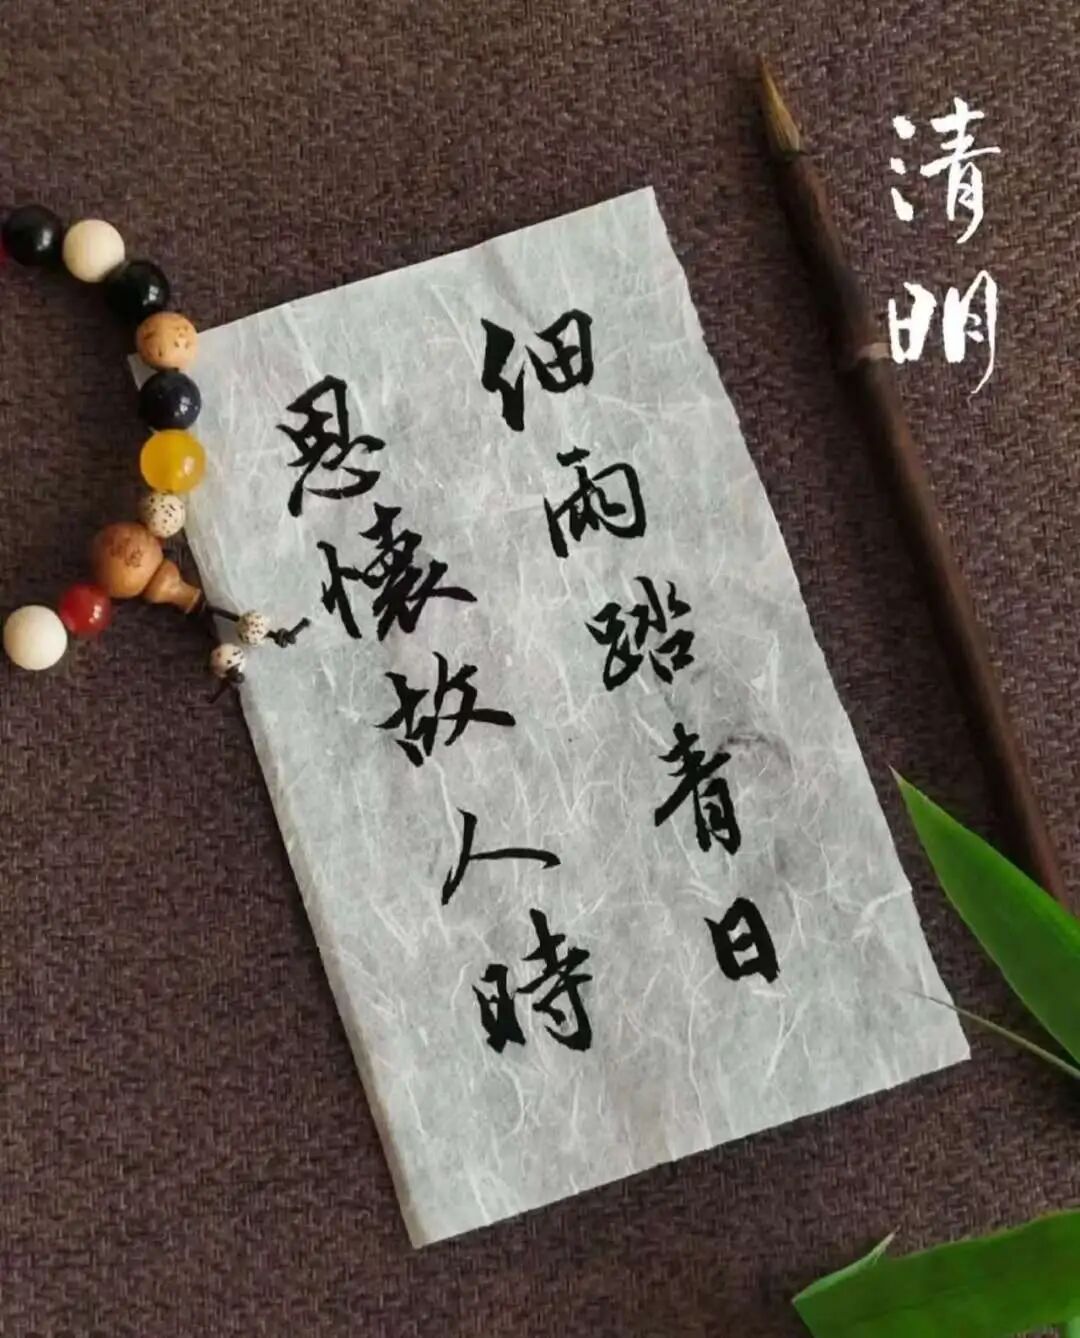 清明
細雨踏青日
思懷故人時